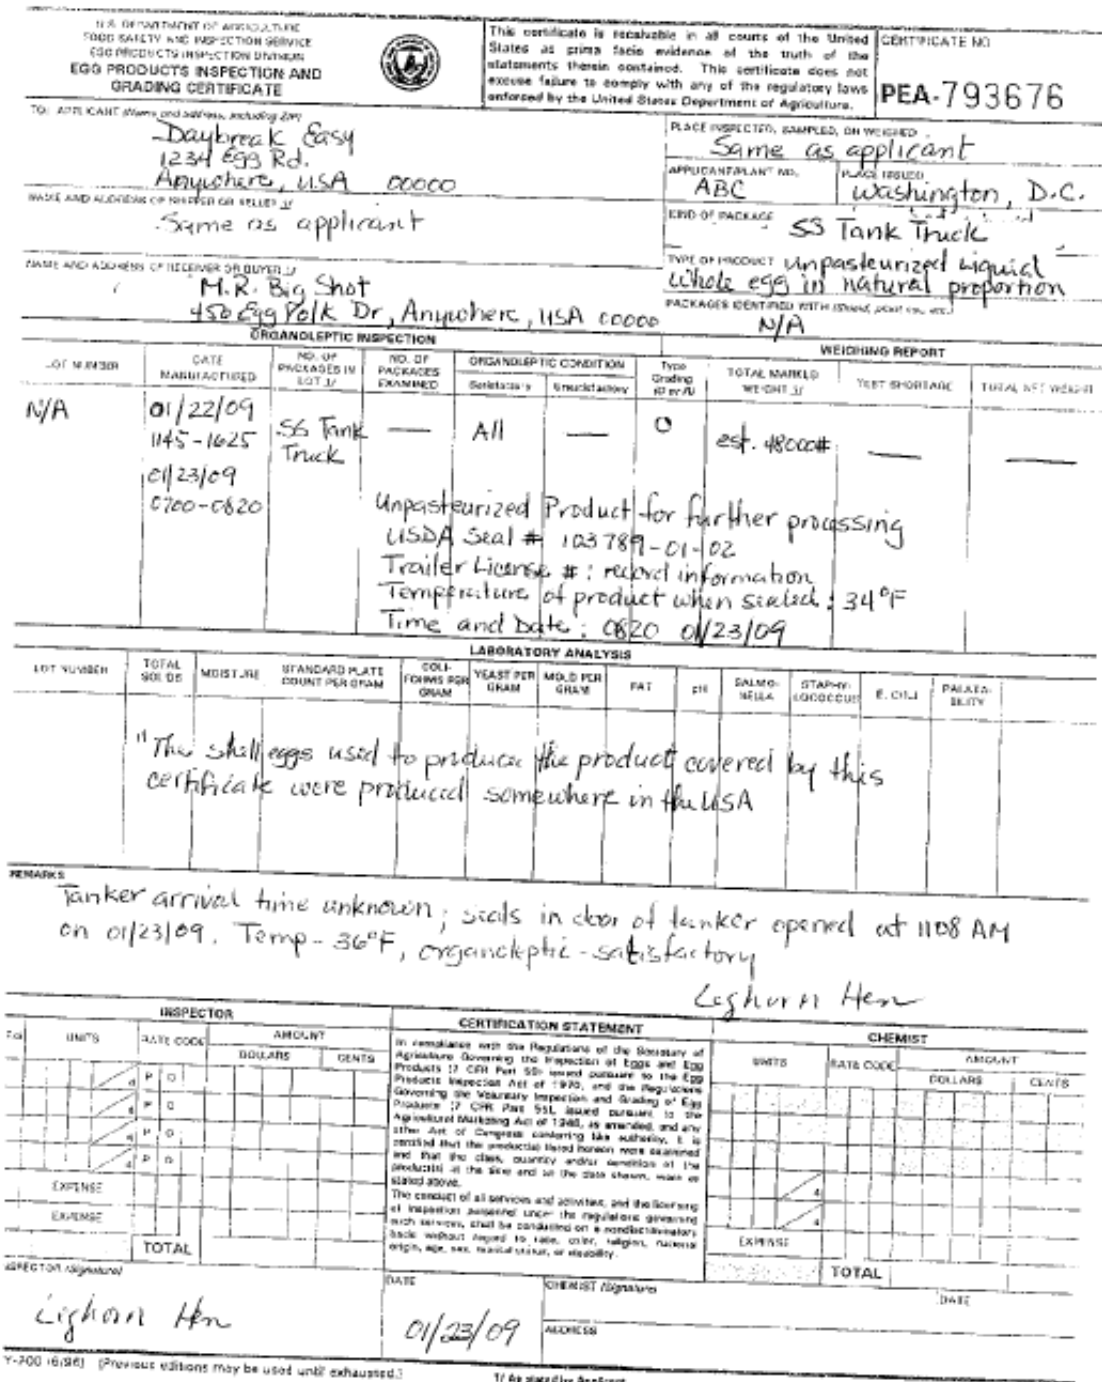 U.S. DEPARTMENT OF AGRICULTURE
FOOD SAFETY AND INSPECTION SERVICE
EGG PRODUCTS INSPECTION DIVISION
EGG PRODUCTS INSPECTION AND
GRADING CERTIFICATE
This certificate is receivable in all courts of the United
States as prima facie evidence of the truth of the
statements therein contained. This certificate does not
excuse failure to comply with any of the regulatory laws
enforced by the United States Department of Agriculture.
CERTIFICATE NO
PEA-793676
TO: APPLICANT (Name and address, including ZIP)
Daybreak Easy
1234 Egg Rd.
Anywhere, USA 00000
PLACE INSPECTED, SAMPLED, OR WEIGHED
Same as applicant
APPLICANT/PLANT NO.
ABC
PLACE ISSUED
Washington, D.C.
NAME AND ADDRESS OF SHIPPER OR SELLER 1/
Same as applicant
KIND OF PACKAGE
SS Tank Truck
TYPE OF PRODUCT Unpasteurized Liquid
Whole egg in natural proportion
NAME AND ADDRESS OF RECEIVER OR BUYER 1/
M.R. Big Shot
450 Egg Yolk Dr, Anywhere, USA 00000
PACKAGES IDENTIFIED WITH
N/A
ORGANOLEPTIC INSPECTION
WEIGHING REPORT
LOT NUMBER
DATE MANUFACTURED
NO. OF PACKAGES IN LOT 1/
NO. OF PACKAGES EXAMINED
ORGANOLEPTIC CONDITION
Satisfactory
Unsatisfactory
Type Grading
TOTAL MARKED WEIGHT 1/
TEST SHORTAGE
TOTAL NET WEIGHT
N/A
01/22/09
1145-1625
01/23/09
0700-0820
SS Tank
Truck
—
All
—
O
est. 48000#
—
—
Unpasteurized Product for further processing
USDA Seal # 103789-01-02
Trailer License #: record information
Temperature of product when sealed: 34°F
Time and Date: 0820 01/23/09
LABORATORY ANALYSIS
LOT NUMBER
TOTAL SOLIDS
MOISTURE
STANDARD PLATE COUNT PER GRAM
COLIFORMS PER GRAM
YEAST PER GRAM
MOLD PER GRAM
FAT
pH
SALMONELLA
STAPHYLOCOCCUS
E. COLI
PALATABILITY
"The shell eggs used to produce the product covered by this
certificate were produced somewhere in the USA
REMARKS
Tanker arrival time unknown; seals in door of tanker opened at 1108 AM
on 01/23/09. Temp - 36°F, organoleptic - satisfactory
Leghorn Hen
INSPECTOR
UNITS
RATE CODE
AMOUNT
DOLLARS
CENTS
4 P O
4 P O
4 P O
4 P O
EXPENSE
EXPENSE
TOTAL
CERTIFICATION STATEMENT
In compliance with the Regulations of the Secretary of
Agriculture Governing the Inspection of Eggs and Egg
Products (7 CFR Part 59) issued pursuant to the Egg
Products Inspection Act of 1970, and the Regulations
Governing the Voluntary Inspection and Grading of Egg
Products (7 CFR Part 55), issued pursuant to the
Agricultural Marketing Act of 1946, as amended, and any
other Act of Congress conferring like authority, it is
certified that the product(s) listed hereon were examined
and that the class, quantity and/or condition of the
product(s) at the time and on the date shown, were as
stated above.
The conduct of all services and activities, and the licensing
of inspection personnel under the regulations governing
such services, shall be conducted on a nondiscriminatory
basis without regard to race, color, religion, national
origin, age, sex, marital status, or disability.
CHEMIST
UNITS
RATE CODE
AMOUNT
DOLLARS
CENTS
4
4
EXPENSE
TOTAL
INSPECTOR (Signature)
Leghorn Hen
DATE
01/23/09
CHEMIST (Signature)
DATE
ADDRESS
Y-200 (6/96) (Previous editions may be used until exhausted.)
1/ As stated by Applicant